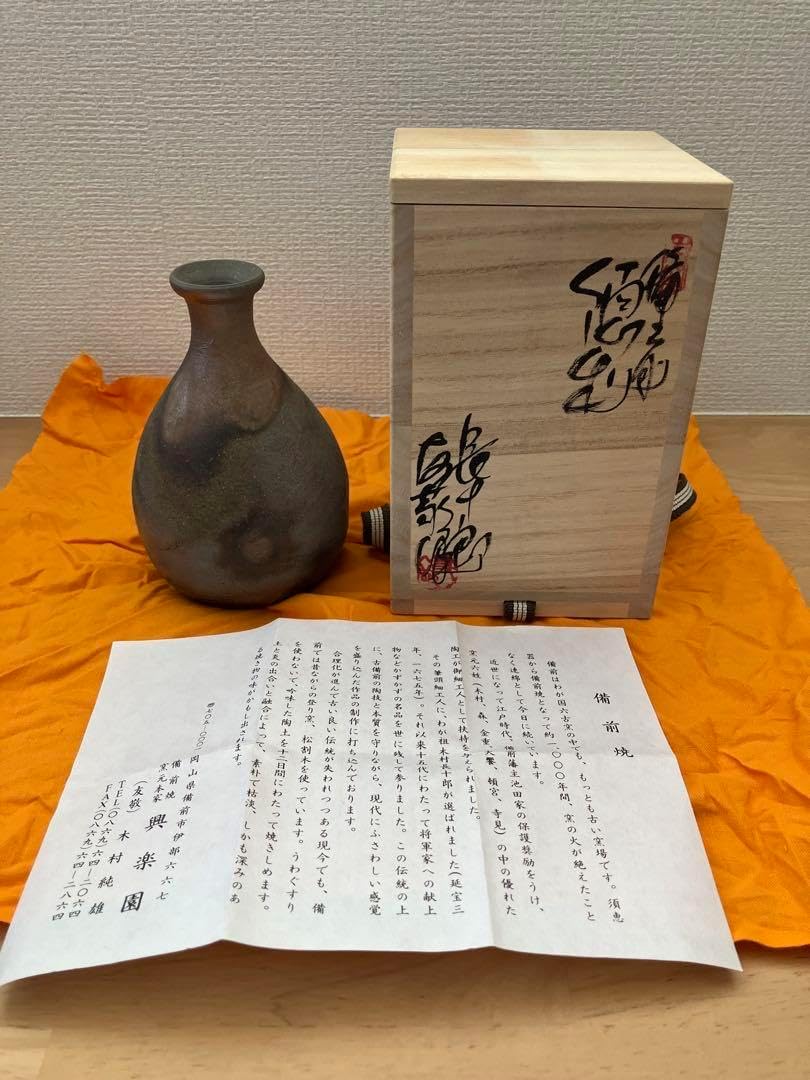 備前
徳利
友敬
備前焼
備前はわが国六古窯の中でも、もっとも古い窯場です。須恵
器から備前焼となって約一、〇〇〇年間、窯の火が絶えたこと
なく連綿として今日に続いています。
近世になって江戸時代、備前藩主池田家の保護奨励をうけ、
窯元六姓(木村、森、金重、大饗、頓宮、寺見)の中の優れた
陶工が御細工人として扶持を与えられました。
その筆頭細工人に、わが祖木村長十郎が選ばれました(延宝三
年、一六七五年)。それ以来十五代にわたって将軍家への献上
物などかずかずの名品を世に残して参りました。この伝統の上
に、古備前の陶技と本質を守りながら、現代にふさわしい感覚
を盛り込んだ作品の制作に打ち込んでおります。
合理化が進んで古い良い伝統が失われつつある現今でも、備
前では昔ながらの登り窯、松割木を使っています。うわぐすり
を使わないで、吟味した陶土を十二日間にわたって焼きしめます。
土と炎の出合いと融合によって、素朴で枯淡、しかも深みのあ
る焼き物の味がかもし出されます。
〒七〇五-〇〇〇一 岡山県備前市伊部六六七
備前焼
窯元本家 興楽園
(友敬) 木村純雄
TEL(〇八六九)六四-二〇六四
FAX(〇八六九)六四-二八六四